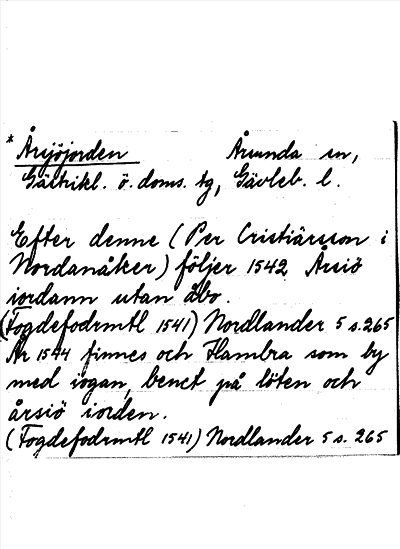 * Årsjöjorden Årsunda sn,
Gästrikl. ö. doms. tg, Gävleb. l.
Efter denne (Per Cristiärsson i
Nordanåker) följer 1542 Årsiö
iordann utan åbo.
(Fogdefodrmtl 1541) Nordlander 5 s. 265
År 1544 finnes och Hambra som by
med iogan, benet på löten och
årsiö iorden.
(Fogdefodrmtl 1541) Nordlander 5 s. 265